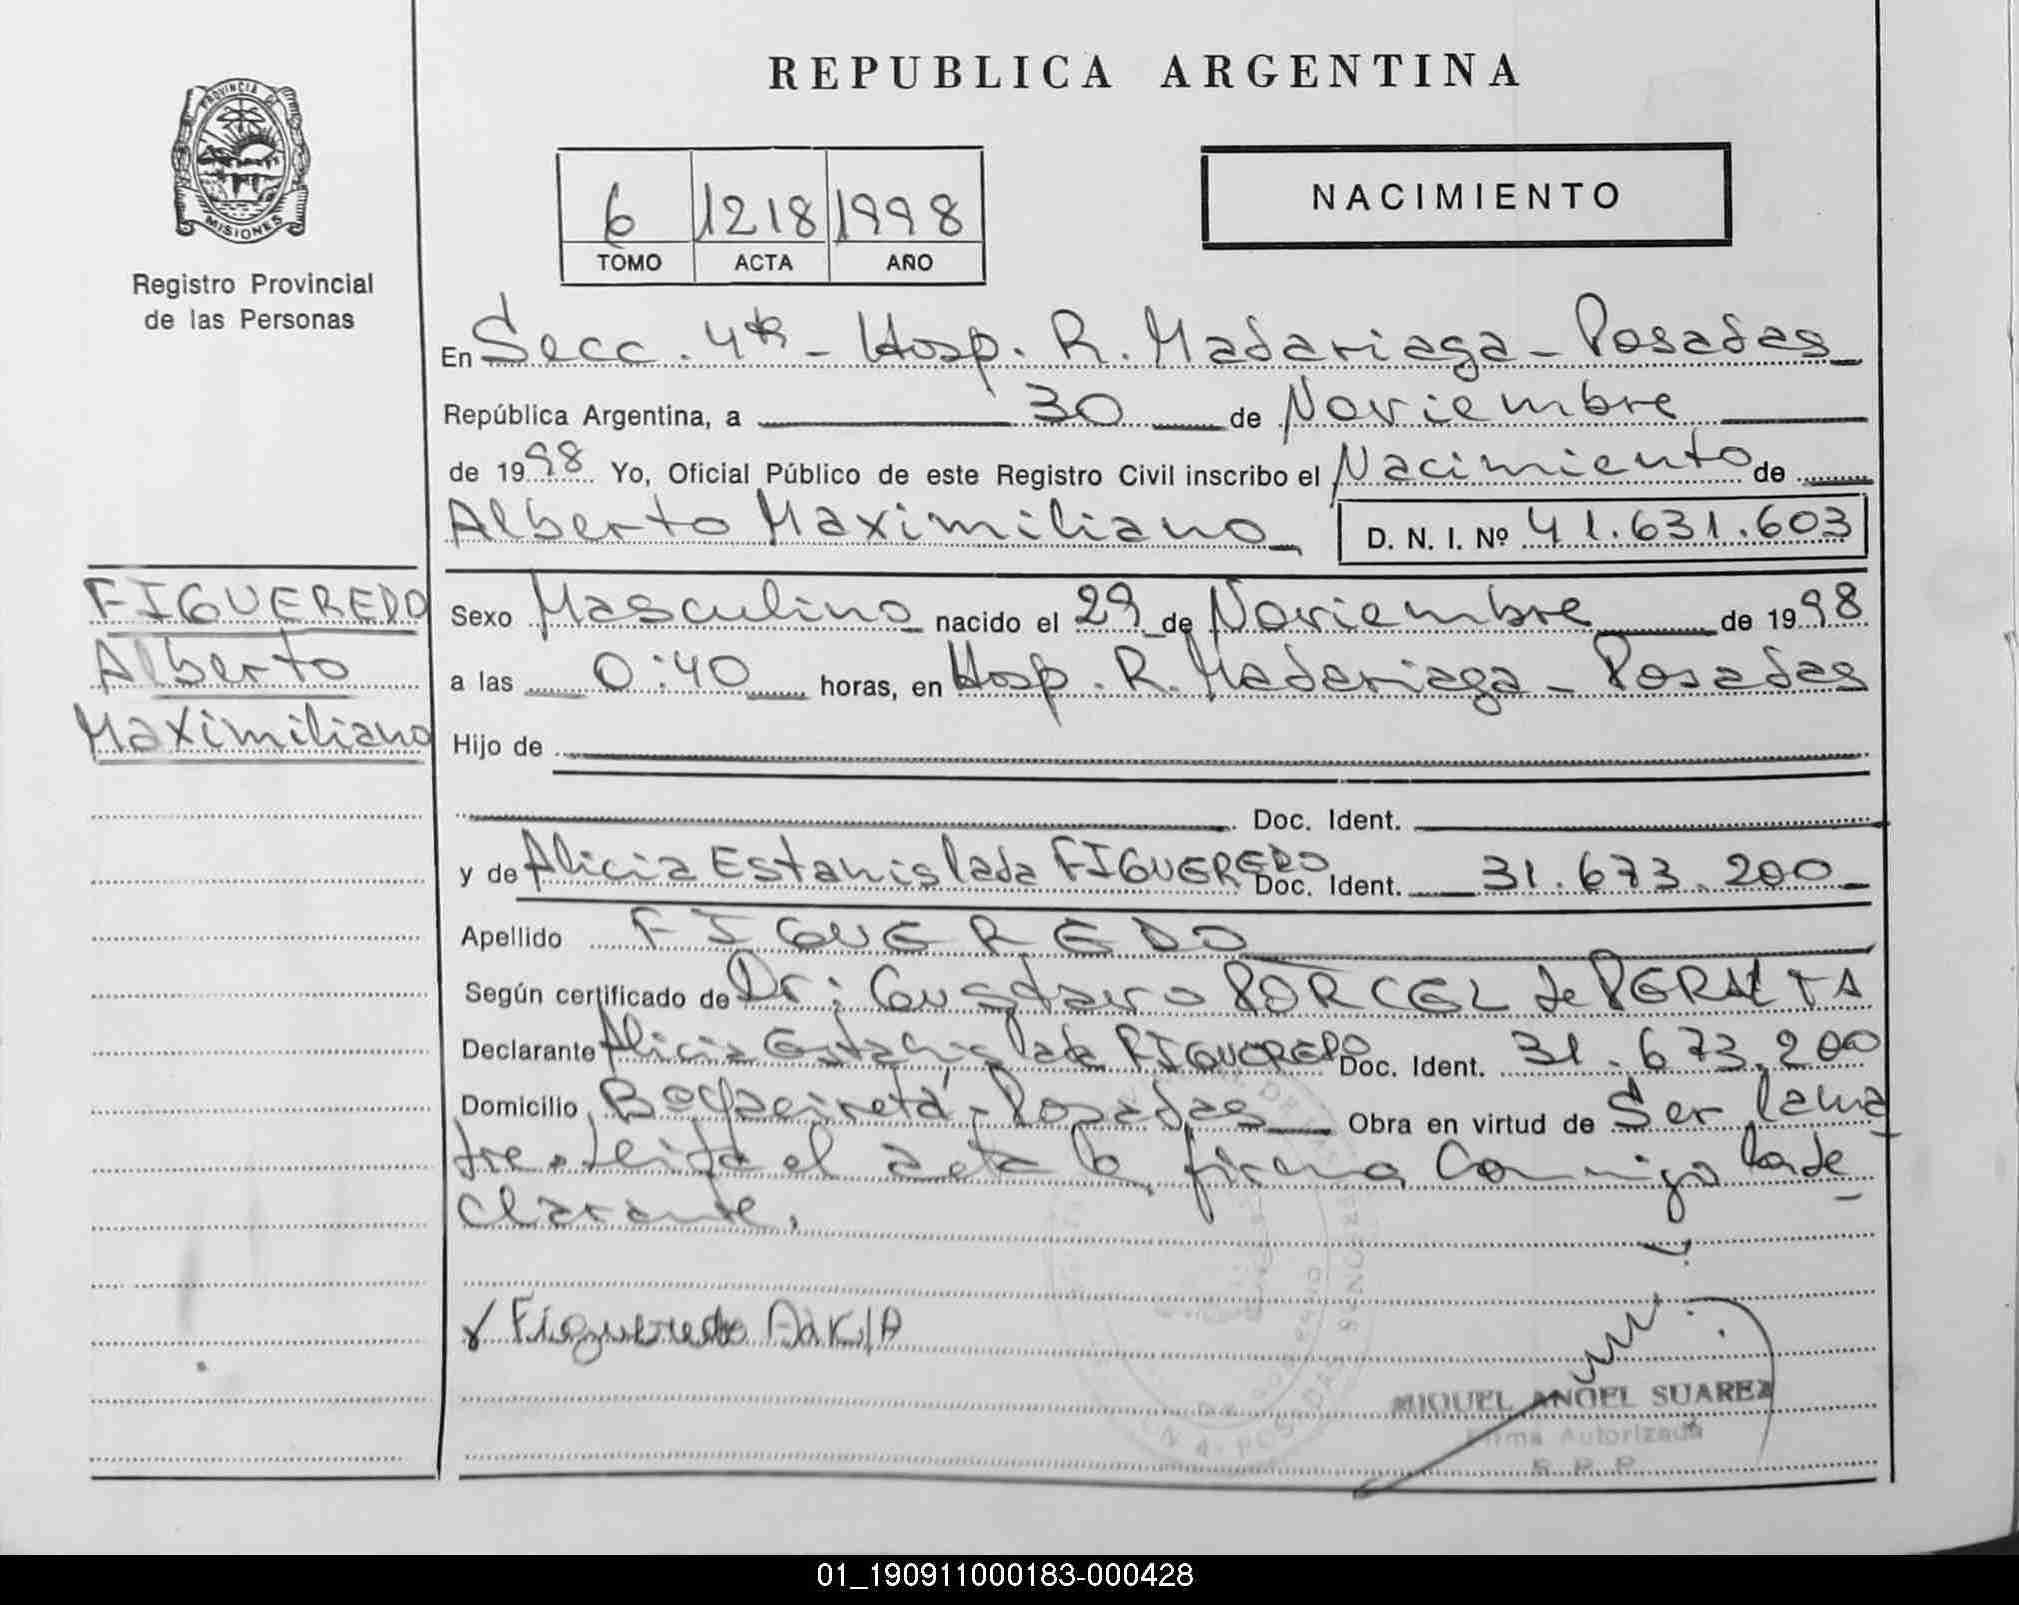 REPUBLICA ARGENTINA
PROVINCIA DE
MISIONES
Registro Provincial
de las Personas
6 1218 1998
TOMO ACTA AÑO
NACIMIENTO
En Secc. 4ta - Hosp. R. Madariaga - Posadas
República Argentina, a 30 de Noviembre
de 1998 Yo, Oficial Público de este Registro Civil inscribo el Nacimiento de
Alberto Maximiliano D. N. I. Nº 41.631.603
FIGUEREDO
Alberto
Maximiliano
Sexo Masculino nacido el 29 de Noviembre de 1998
a las 0:40 horas, en Hosp. R. Madariaga - Posadas
Hijo de
Doc. Ident.
y de Alicia Estanislada FIGUEREDO Doc. Ident. 31.673.200
Apellido FIGUEREDO
Según certificado de Dr: Gustavo PORCEL de PERALTA
Declarante Alicia Estanislada FIGUEREDO Doc. Ident. 31.673.200
Domicilio - Posadas Obra en virtud de Ser la ma
dre. Leida el acta la firma Conmigo la de
clarante.
Figueredo
MIGUEL ANGEL SUAREZ
Firma Autorizada
R. P. P.
01_190911000183-000428